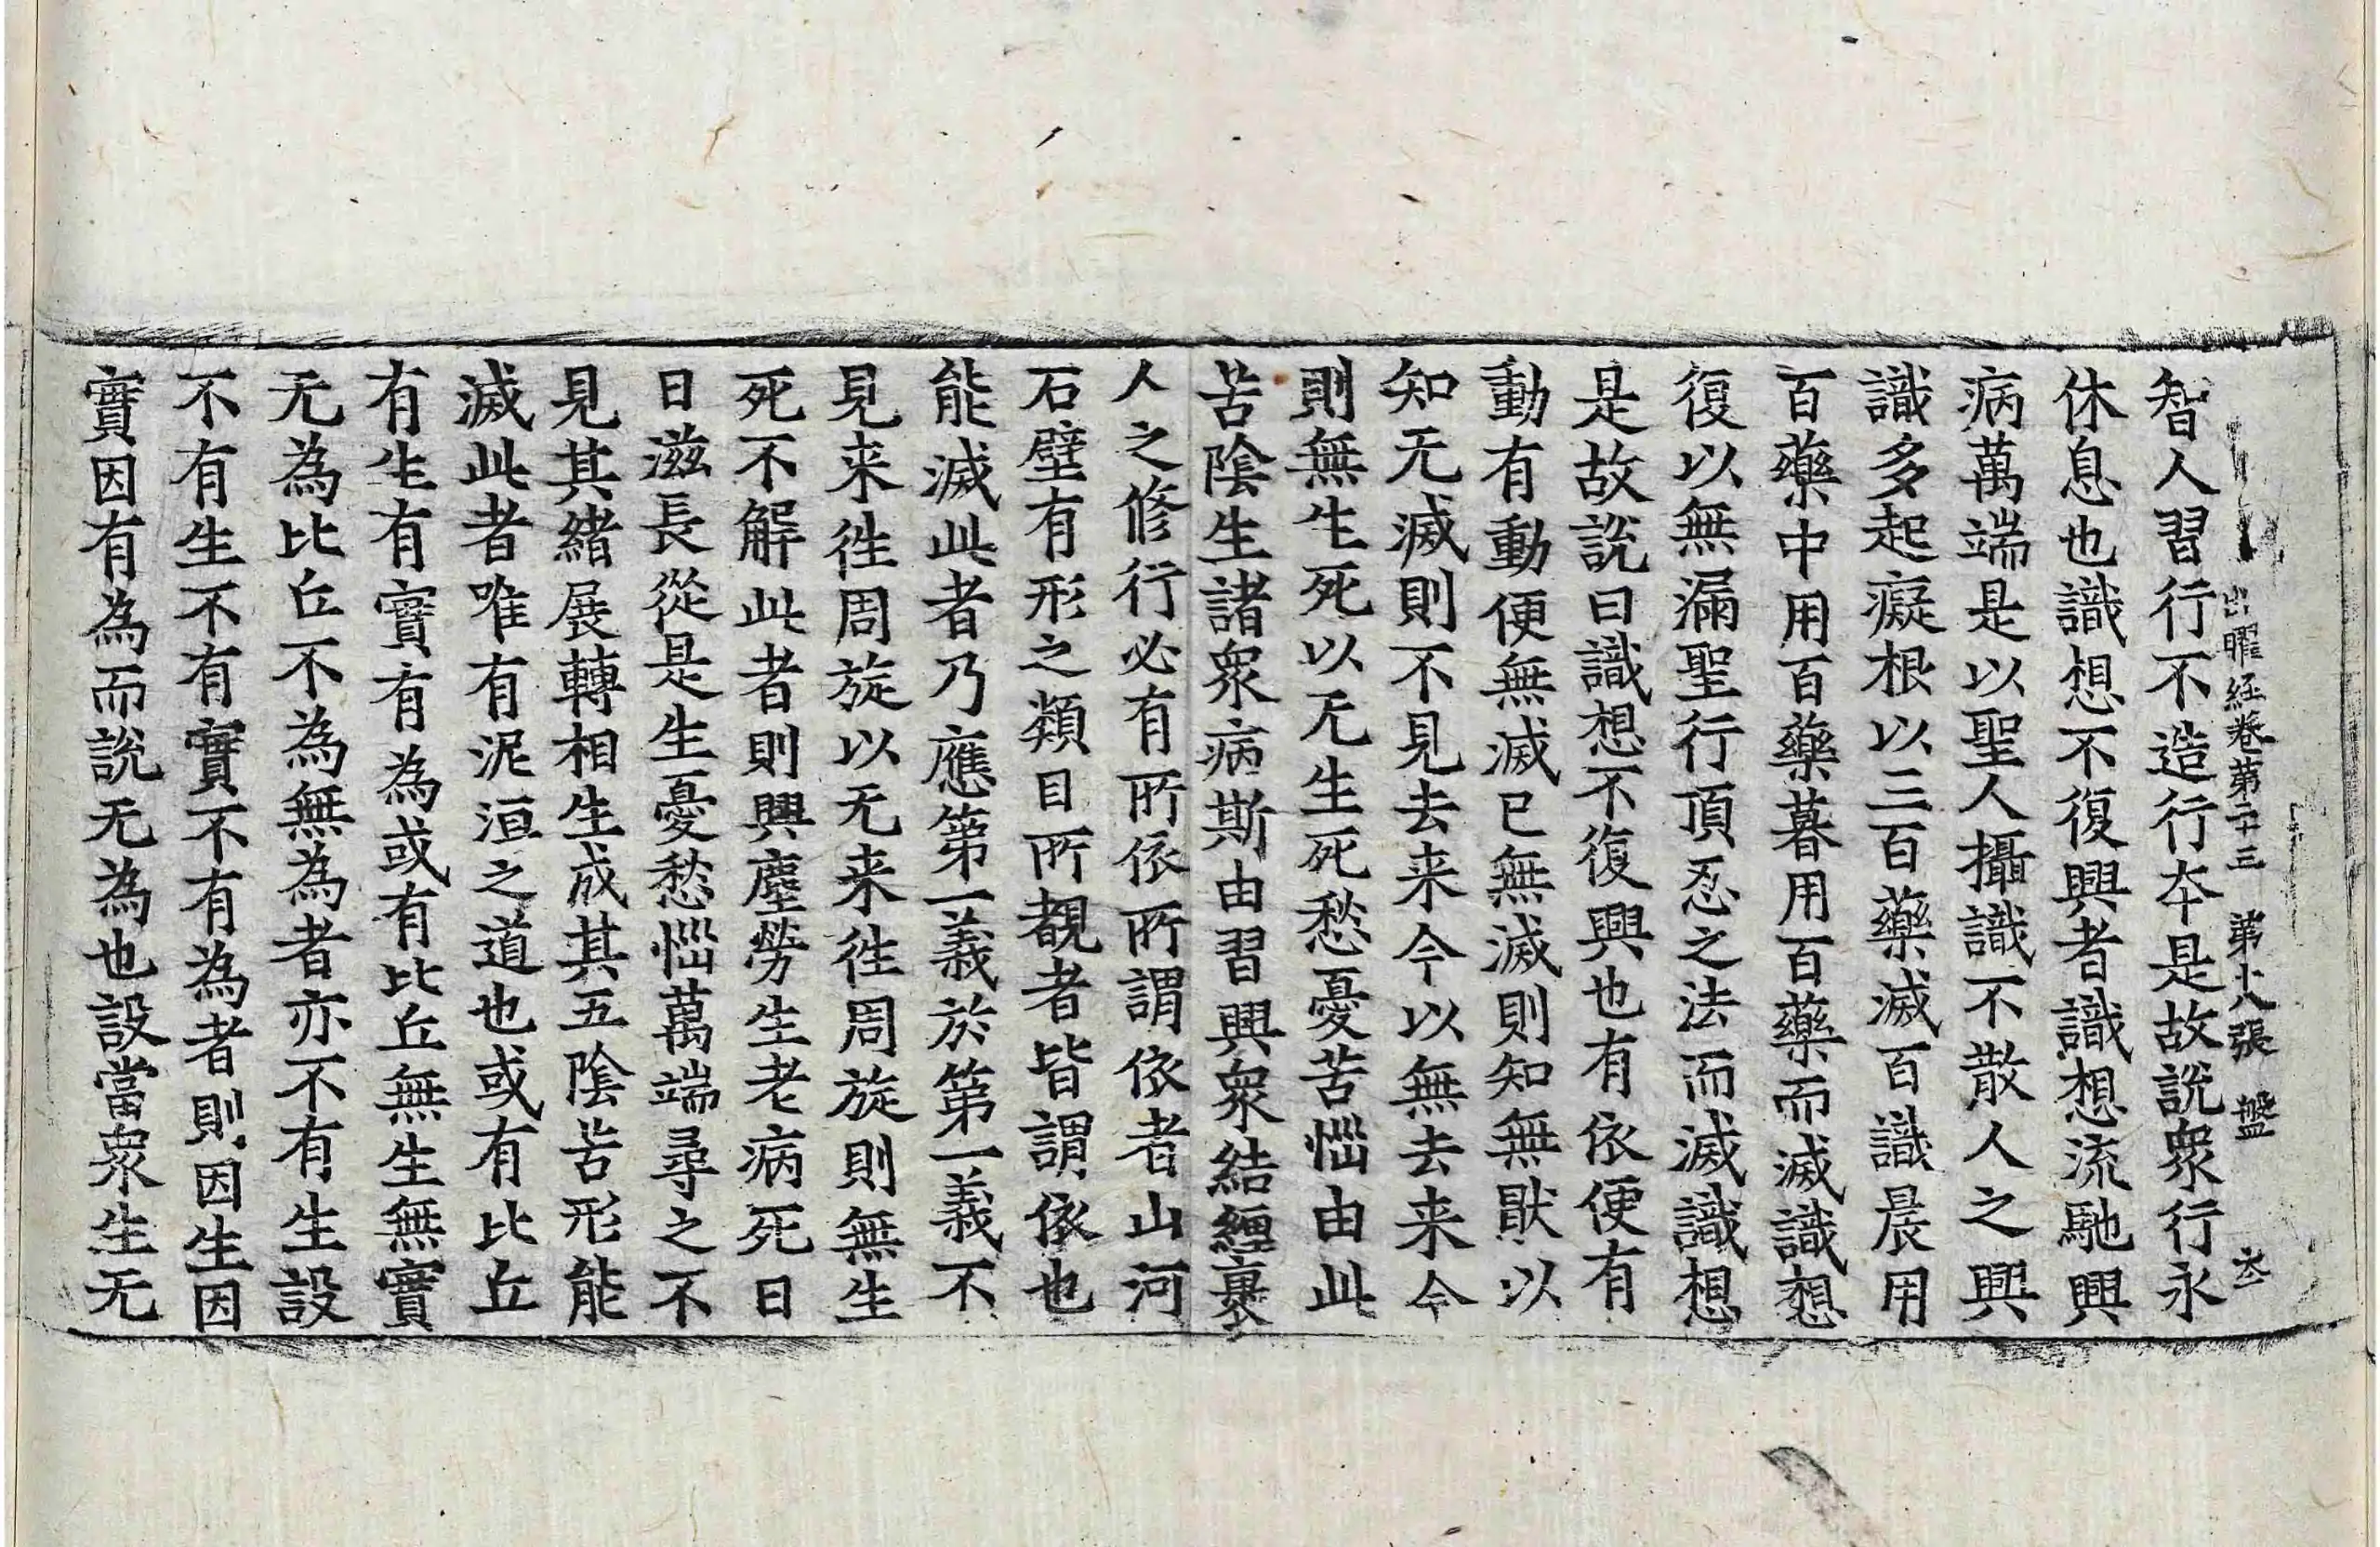 出曜經卷第二十三 第十八張 盤
智人習行不造行夲是故說衆行永
休息也識想不復興者識想流馳興
病萬端是以聖人攝識不散人之興
識多起癡根以三百藥滅百識晨用
百藥中用百藥暮用百藥而滅識想
復以無漏聖行頂忍之法而滅識想
是故說曰識想不復興也有依便有
動有動便無滅已無滅則知無猒以
知无滅則不見去来今以無去来今
則無生死以无生死愁憂苦惱由此
苦陰生諸衆病斯由習興衆結纏裹
人之修行必有所依所謂依者山河
石壁有形之類目所覩者皆謂依也
能滅此者乃應第一義於第一義不
見来徃周旋以无来徃周旋則無生
死不解此者則興塵勞生老病死日
日滋長從是生憂愁惱萬端尋之不
見其緒展轉相生成其五陰苦形能
滅此者唯有泥洹之道也或有比丘
有生有實有為或有比丘無生無實
无為比丘不為無為者亦不有生設
不有生不有實不有為者則因生因
實因有為而說无為也設當衆生无